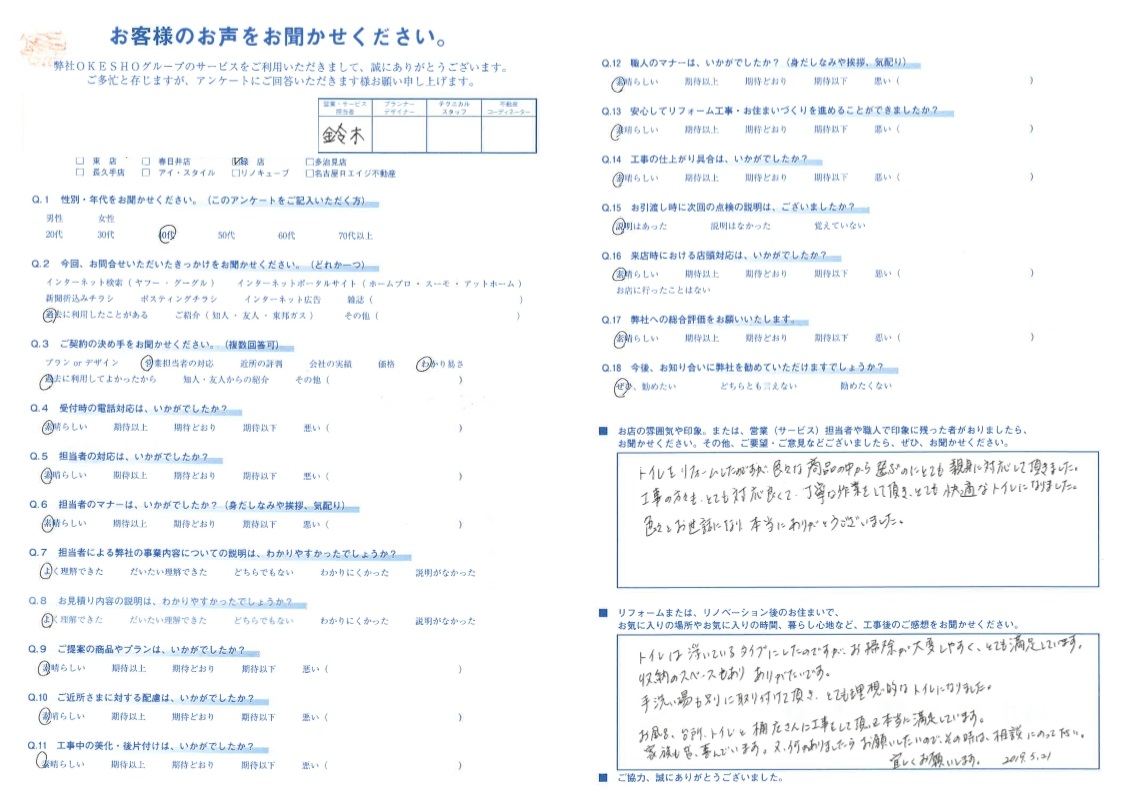 お客様のお声をお聞かせください。
弊社OKESHOグループのサービスをご利用いただきまして、誠にありがとうございます。
ご多忙と存じますが、アンケートにご回答いただきます様お願い申し上げます。
営業・サービス担当者 プランナーデザイナー テクニカルスタッフ 不動産コーディネーター
鈴木
□ 東 店 □ 春日井店 ☑緑 店 □多治見店
□ 長久手店 □ アイ・スタイル □リノキューブ □名古屋Rエイジ不動産
Q.1 性別・年代をお聞かせください。（このアンケートをご記入いただく方）
男性 女性
20代 30代 40代 50代 60代 70代以上
Q.2 今回、お問合せいただいたきっかけをお聞かせください。（どれか一つ）
インターネット検索（ヤフー・グーグル） インターネットポータルサイト（ホームプロ・スーモ・アットホーム）
新聞折込みチラシ ポスティングチラシ インターネット広告 雑誌（ ）
過去に利用したことがある ご紹介（知人・友人・東邦ガス） その他（ ）
Q.3 ご契約の決め手をお聞かせください。（複数回答可）
プラン or デザイン 営業担当者の対応 近所の評判 会社の実績 価格 わかり易さ
過去に利用してよかったから 知人・友人からの紹介 その他（ ）
Q.4 受付時の電話対応は、いかがでしたか？
素晴らしい 期待以上 期待どおり 期待以下 悪い（ ）
Q.5 担当者の対応は、いかがでしたか？
素晴らしい 期待以上 期待どおり 期待以下 悪い（ ）
Q.6 担当者のマナーは、いかがでしたか？（身だしなみや挨拶、気配り）
素晴らしい 期待以上 期待どおり 期待以下 悪い（ ）
Q.7 担当者による弊社の事業内容についての説明は、わかりやすかったでしょうか？
よく理解できた だいたい理解できた どちらでもない わかりにくかった 説明がなかった
Q.8 お見積り内容の説明は、わかりやすかったでしょうか？
よく理解できた だいたい理解できた どちらでもない わかりにくかった 説明がなかった
Q.9 ご提案の商品やプランは、いかがでしたか？
素晴らしい 期待以上 期待どおり 期待以下 悪い（ ）
Q.10 ご近所さまに対する配慮は、いかがでしたか？
素晴らしい 期待以上 期待どおり 期待以下 悪い（ ）
Q.11 工事中の美化・後片付けは、いかがでしたか？
素晴らしい 期待以上 期待どおり 期待以下 悪い（ ）
Q.12 職人のマナーは、いかがでしたか？（身だしなみや挨拶、気配り）
素晴らしい 期待以上 期待どおり 期待以下 悪い（ ）
Q.13 安心してリフォーム工事・お住まいづくりを進めることができましたか？
素晴らしい 期待以上 期待どおり 期待以下 悪い（ ）
Q.14 工事の仕上がり具合は、いかがでしたか？
素晴らしい 期待以上 期待どおり 期待以下 悪い（ ）
Q.15 お引渡し時に次回の点検の説明は、ございましたか？
説明はあった 説明はなかった 覚えていない
Q.16 来店時における店頭対応は、いかがでしたか？
素晴らしい 期待以上 期待どおり 期待以下 悪い（ ）
お店に行ったことはない
Q.17 弊社への総合評価をお願いいたします。
素晴らしい 期待以上 期待どおり 期待以下 悪い（ ）
Q.18 今後、お知り合いに弊社を勧めていただけますでしょうか？
ぜひ、勧めたい どちらとも言えない 勧めたくない
■ お店の雰囲気や印象。または、営業（サービス）担当者や職人で印象に残った者がおりましたら、
お聞かせください。その他、ご要望・ご意見などございましたら、ぜひ、お聞かせください。
トイレをリフォームしたのですが、色々な商品の中から選ぶのにとても親身に対応して頂きました。
工事の方々も、とても対応良くて、丁寧な作業をして頂き、とても快適なトイレになりました。
色々とお世話になり、本当にありがとうございました。
■ リフォームまたは、リノベーション後のお住まいで、
お気に入りの場所やお気に入りの時間、暮らし心地など、工事後のご感想をお聞かせください。
トイレは浮いているタイプにしたのですが、お掃除が大変しやすく、とても満足しています。
収納のスペースもあり ありがたいです。
手洗い場も別に取り付けて頂き、とても理想的なトイレになりました。
お風呂、台所、トイレと桶庄さんに工事をして頂いて本当に満足しています。
家族も皆、喜んでいます。又、何かありましたらお願いしたいので、その時は、相談にのって下さい。
宜しくお願いします。 2019.5.21
■ ご協力、誠にありがとうございました。